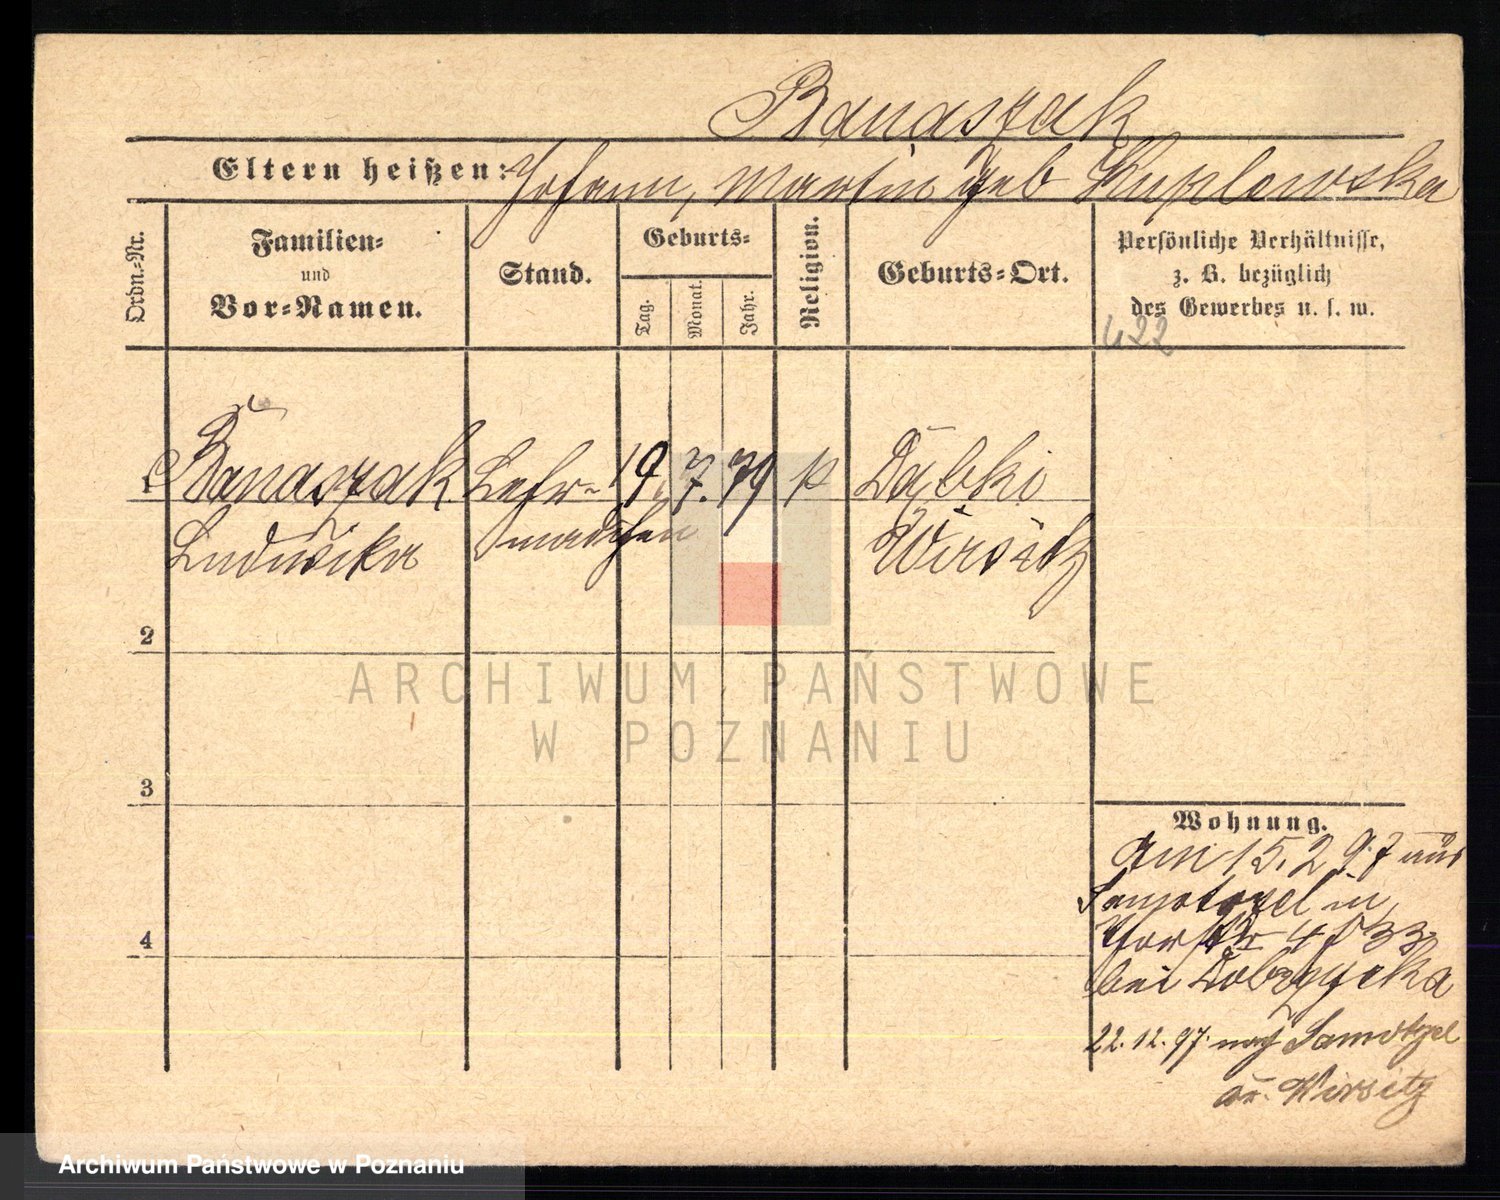 Banaszak
Eltern heißen: Johann, Martin geb
Ordn.-Nr.
Familien-
und
Vor-Namen.
Stand.
Geburts-
Tag.
Monat.
Jahr.
Religion.
Geburts-Ort.
Persönliche Verhältnisse,
z. B. bezüglich
des Gewerbes u. s. w.
422
1 Banaszak Lehr- 19 7. 79 k Dąbki
Ludwika mädchen Wirsitz
2
3
4
Wohnung.
am 15.2 97 aus
Samotzel in
bei Dobzycka
22.12.97. nach Samotzel
Kr. Wirsitz
ARCHIWUM PAŃSTWOWE
W POZNANIU
Archiwum Państwowe w Poznaniu